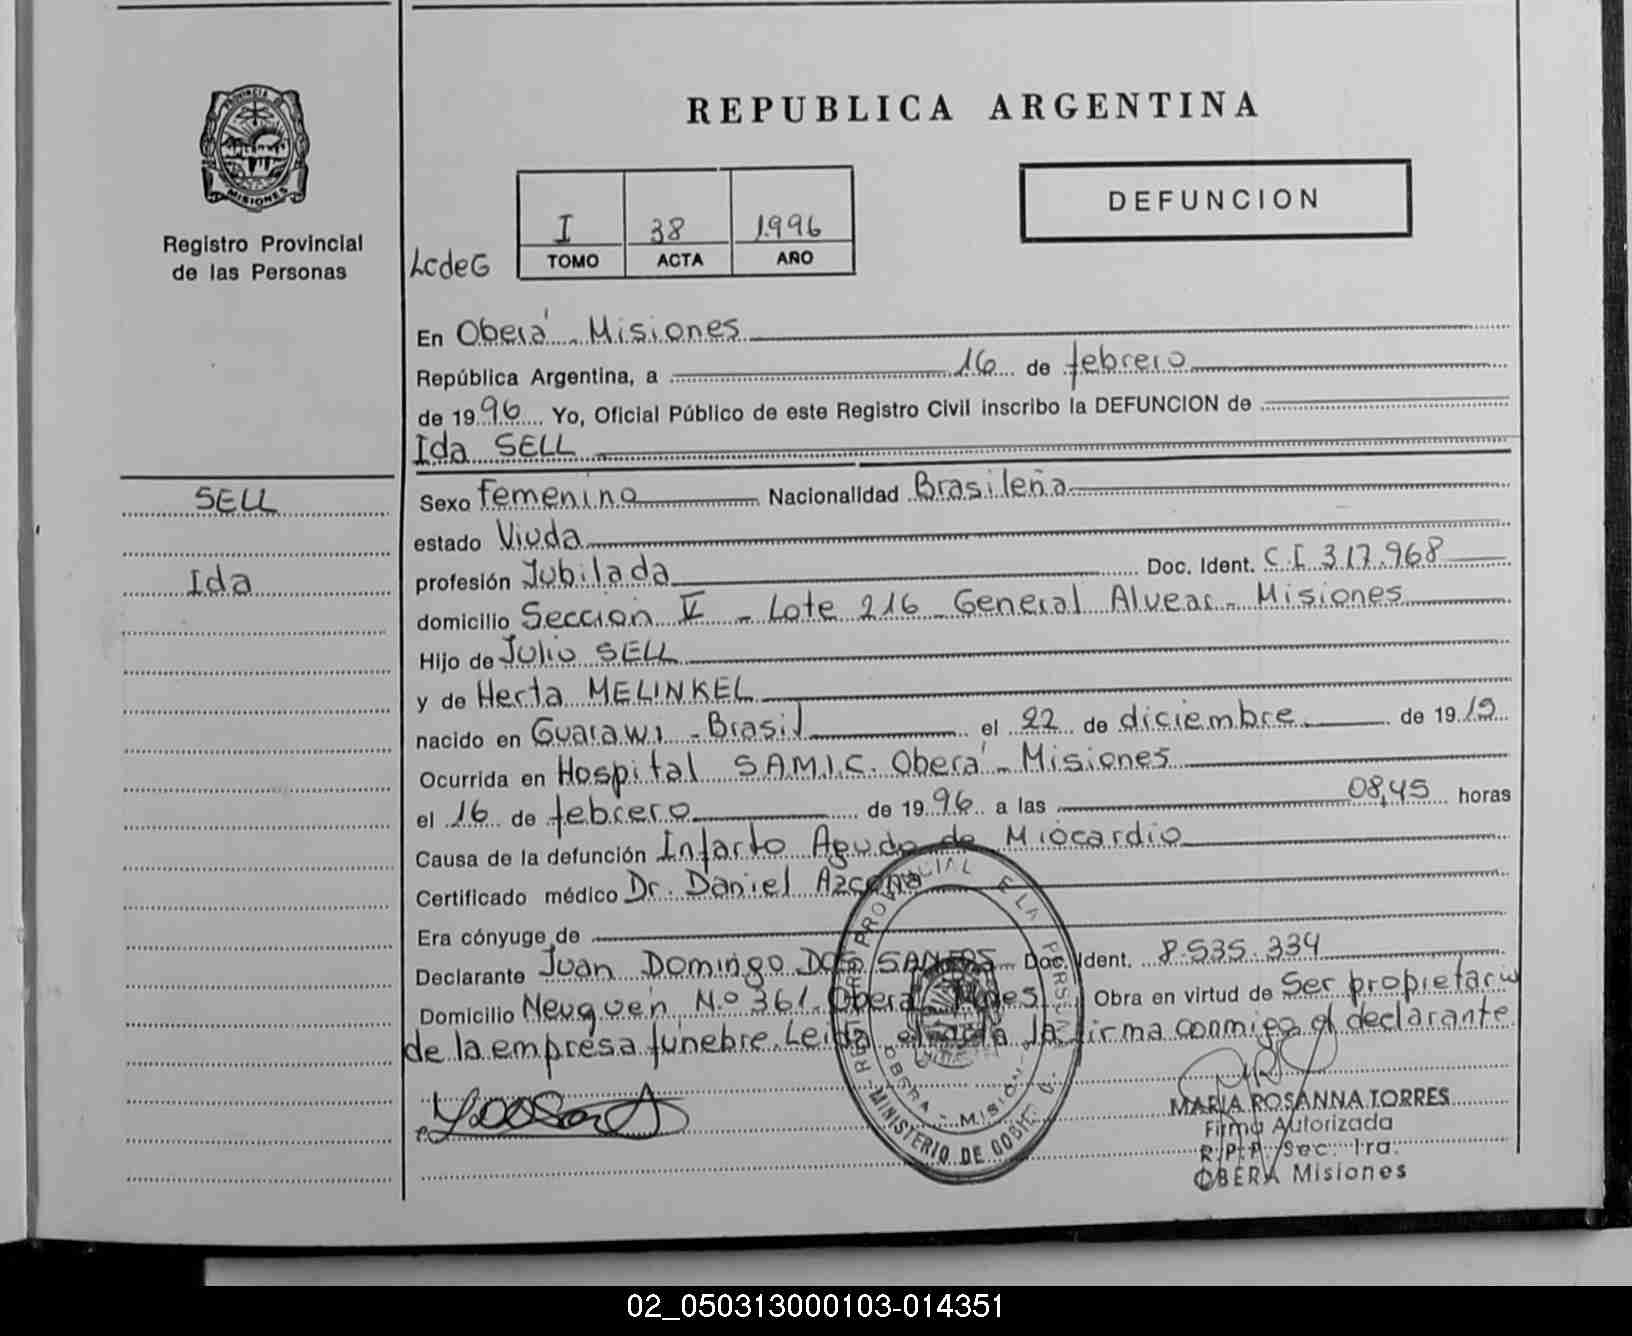 REPUBLICA ARGENTINA
PROVINCIA DE
MISIONES
Registro Provincial
de las Personas
LcdeG
I 38 1996
TOMO ACTA AÑO
DEFUNCION
En Oberá - Misiones
República Argentina, a 16 de febrero
de 1996 Yo, Oficial Público de este Registro Civil inscribo la DEFUNCION de
Ida SELL
SELL
Ida
Sexo femenino Nacionalidad Brasileña
estado Viuda
profesión Jubilada Doc. Ident. C.I. 317.968
domicilio Sección V - Lote 216 - General Alvear - Misiones
Hijo de Julio SELL
y de Herta MELINKEL
nacido en Guarawi - Brasil el 22 de diciembre de 1919
Ocurrida en Hospital S.A.M.I.C. Oberá - Misiones
el 16 de febrero de 1996 a las 08,45 horas
Causa de la defunción Infarto Agudo de Miocardio
Certificado médico Dr. Daniel Azcona
Era cónyuge de
Declarante Juan Domingo DOS SANTOS Doc. Ident. 8.535.334
Domicilio Neuquén N.º 361. Oberá Mnes Obra en virtud de Ser propietario
de la empresa fúnebre. Leida el acta la firma conmigo el declarante
MARIA ROSANNA TORRES
Firma Autorizada
R.P.P. Sec. 1ra.
OBERA Misiones
02_050313000103-014351